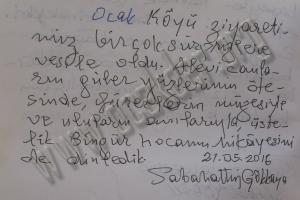 Ocak Köyü ziyareti
miz birçok sürprizlere
vesile oldu. Alevi canla
rın güler yüzlerinin öte
sinde, ve uluların anılarıyla üste
lik Bingür hocamın hikâyesini
de dinledik. 21.05.2016
Sabahattin Gökkaya